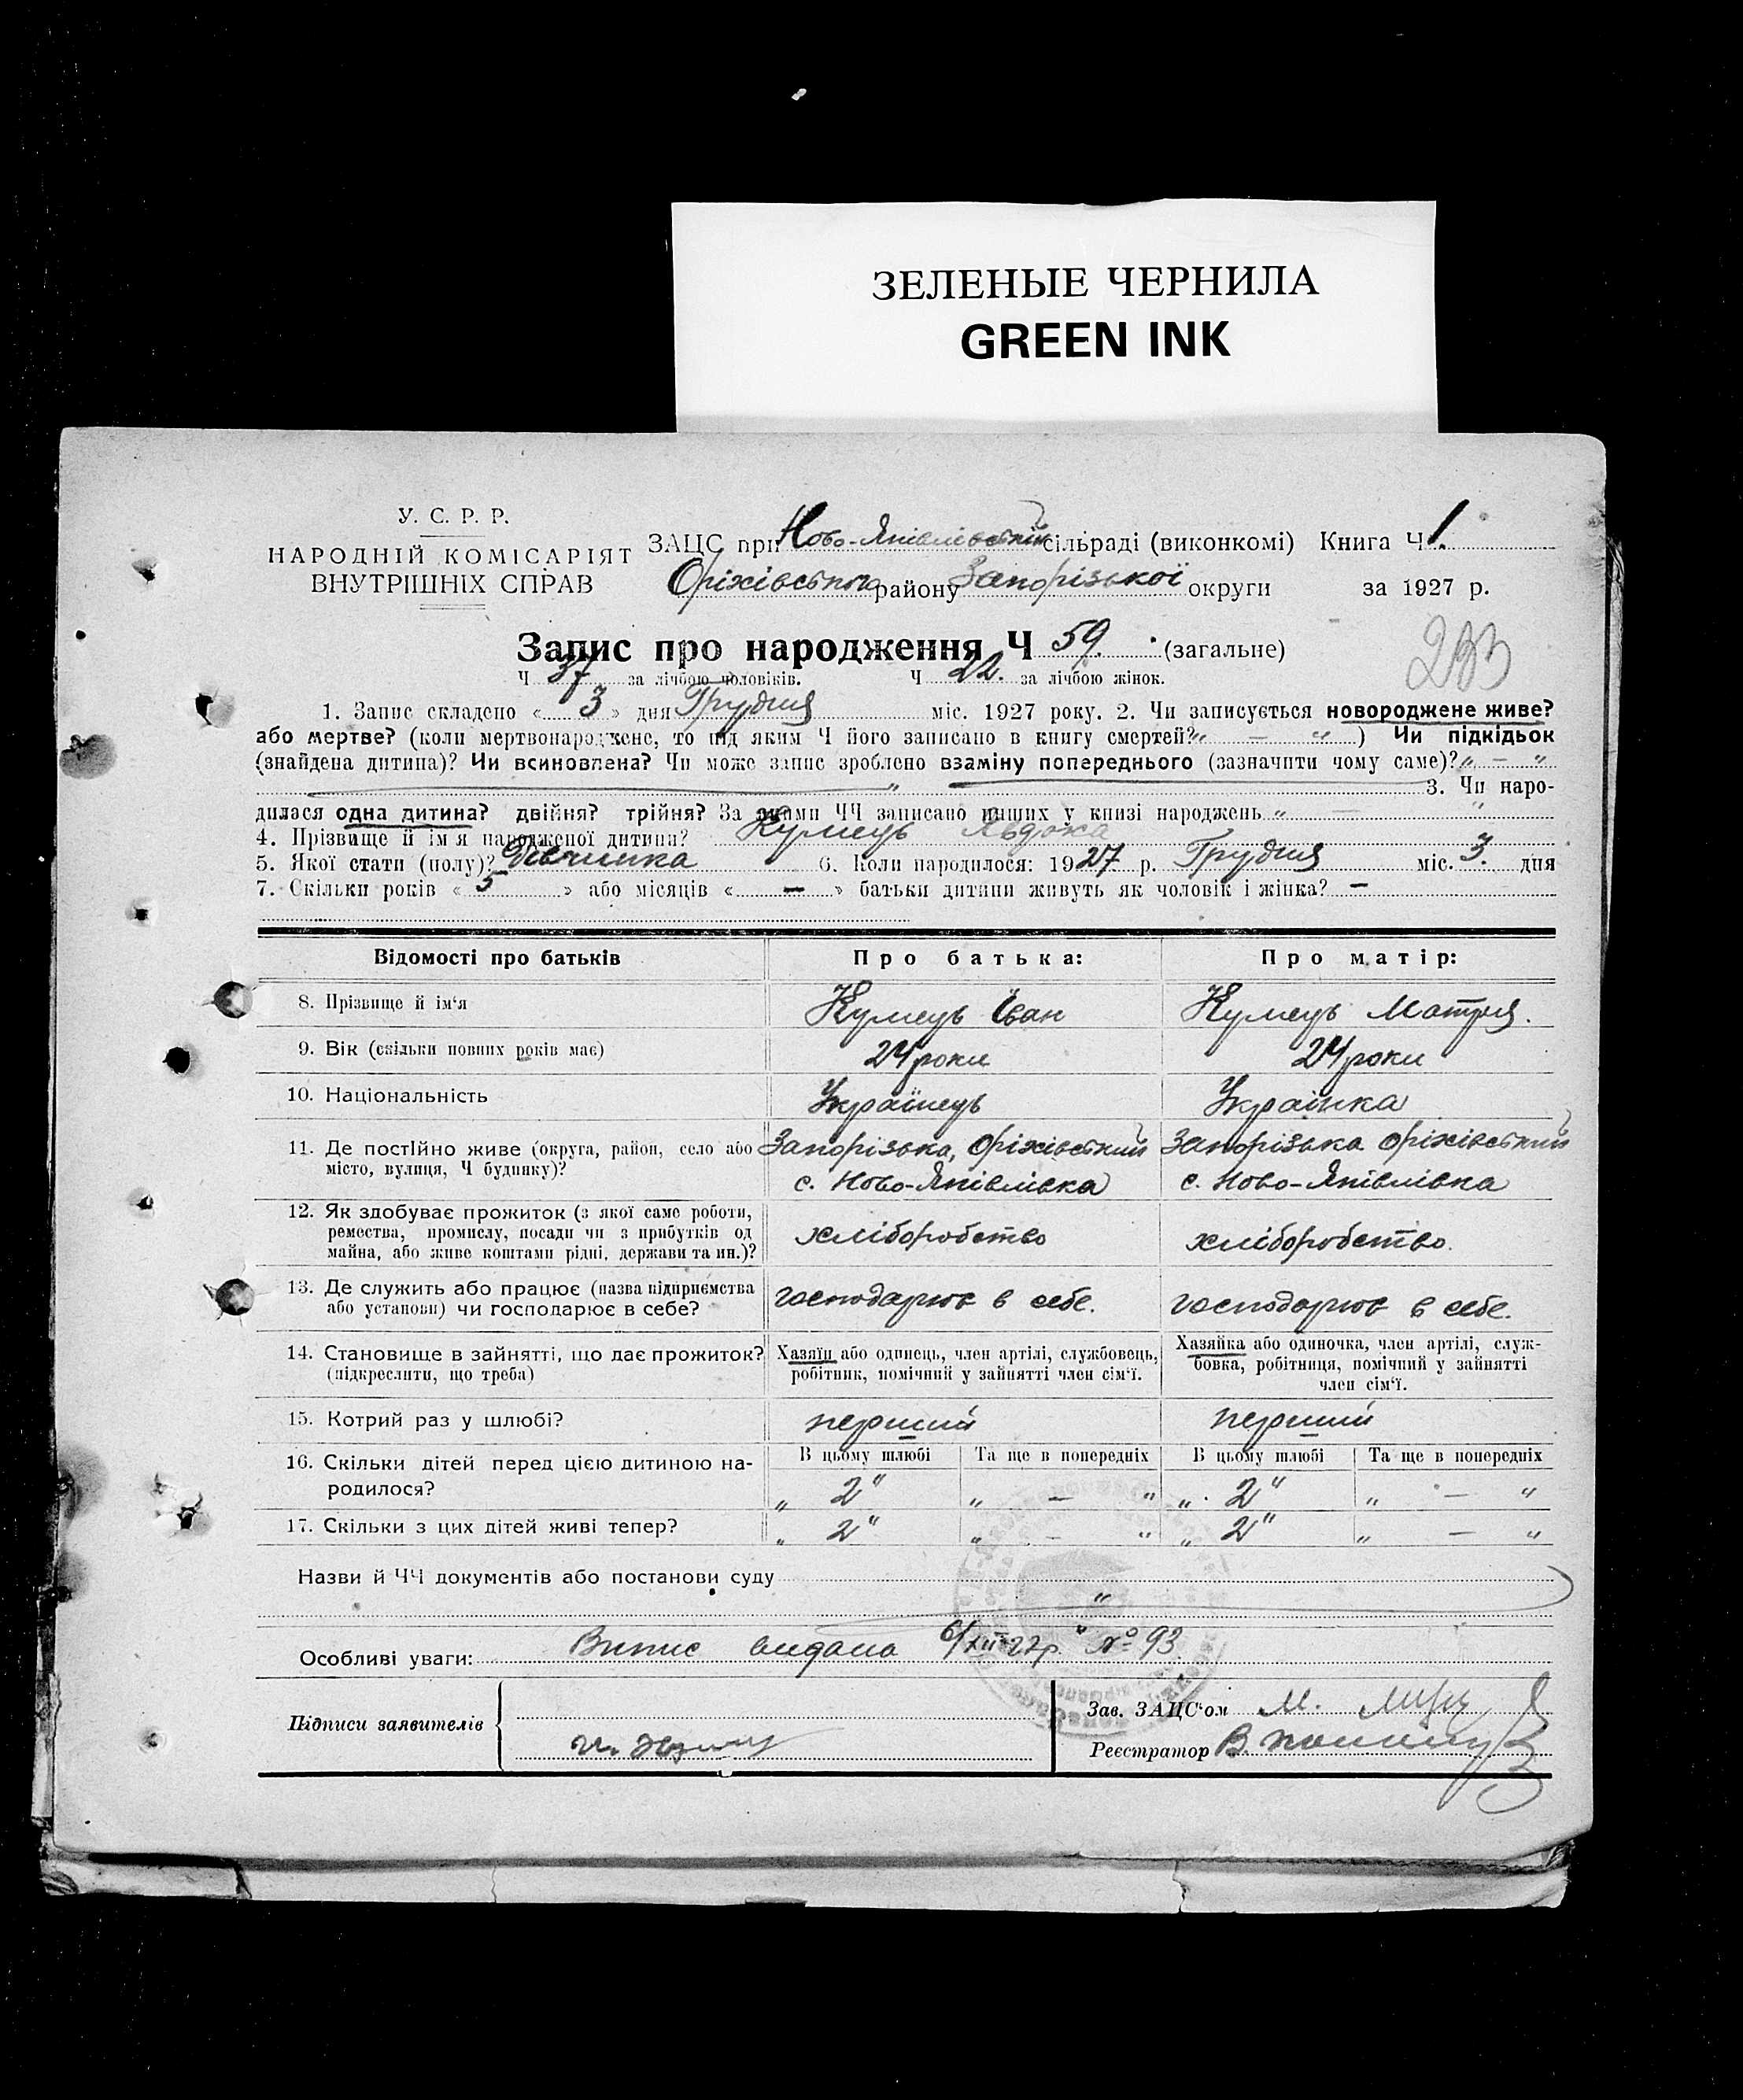 ЗЕЛЕНЫЕ ЧЕРНИЛА
GREEN INK
У. С. Р. Р.
НАРОДНІЙ КОМІСАРІЯТ
ВНУТРІШНІХ СПРАВ
ЗАЦС при Ново-Яківлівській сільраді (виконкомі) Книга Ч 1.
Оріхівського району Запорізької округи за 1927 р.
Запис про народження Ч 59. (загальне)
Ч 37 за лічбою чоловіків. Ч 22. за лічбою жінок.
1. Запис складено « 3 » дня Грудня міс. 1927 року. 2. Чи записується новороджене живе?
або мертве? (коли мертвонароджене, то під яким Ч його записано в книгу смертей? „ — “ ) Чи підкідьок
(знайдена дитина)? Чи всиновлена? Чи може запис зроблено взаміну попереднього (зазначити чому саме)? „ — “
„ 3. Чи наро-
дилася одна дитина? двійня? трійня? За якими ЧЧ записано инших у книзі народжень „ — “
4. Прізвище й ім'я народженої дитини? Кумець Явдоха
5. Якої стати (полу)? Дівчинка 6. Коли народилося: 1927 р. Грудня міс. 3. дня
7. Скільки років « 5 » або місяців « — » батьки дитини живуть як чоловік і жінка? —
Відомості про батьків Про батька: Про матір:
8. Прізвище й ім‘я Кумець Іван Кумець Мотря.
9. Вік (скільки повних років має) 24 роки 24 роки
10. Національність Українець Українка
11. Де постійно живе (округа, район, село або Запорізька, Оріхівський Запорізька Оріхівський
місто, вулиця, Ч будинку)? с. Ново-Яківлівка с. Ново-Яківлівка
12. Як здобуває прожиток (з якої саме роботи,
ремества, промислу, посади чи з прибутків од хліборобство хліборобство.
майна, або живе коштами рідні, держави та ин.)?
13. Де служить або працює (назва підприємства
або установи) чи господарює в себе? господарює в себе. господарює в себе.
14. Становище в зайнятті, що дає прожиток? Хазяїн або одинець, член артілі, службовець, Хазяйка або одиночка, член артілі, служ-
(підкреслити, що треба) робітник, помічний у зайнятті член сім‘ї. бовка, робітниця, помічний у зайнятті
член сім‘ї.
15. Котрий раз у шлюбі? перший перший
16. Скільки дітей перед цією дитиною на- В цьому шлюбі Та ще в попередніх В цьому шлюбі Та ще в попередніх
родилося? „ 2 “ „ — “ „ 2 “ „ — “
17. Скільки з цих дітей живі тепер? „ 2 “ „ — “ „ 2 “ „ — “
Назви й ЧЧ документів або постанови суду
“
Особливі уваги: Випис видано 6/XII-27р. № 93.
Підписи заявителів
Зав. ЗАЦС‘ом М.
Реєстратор В.